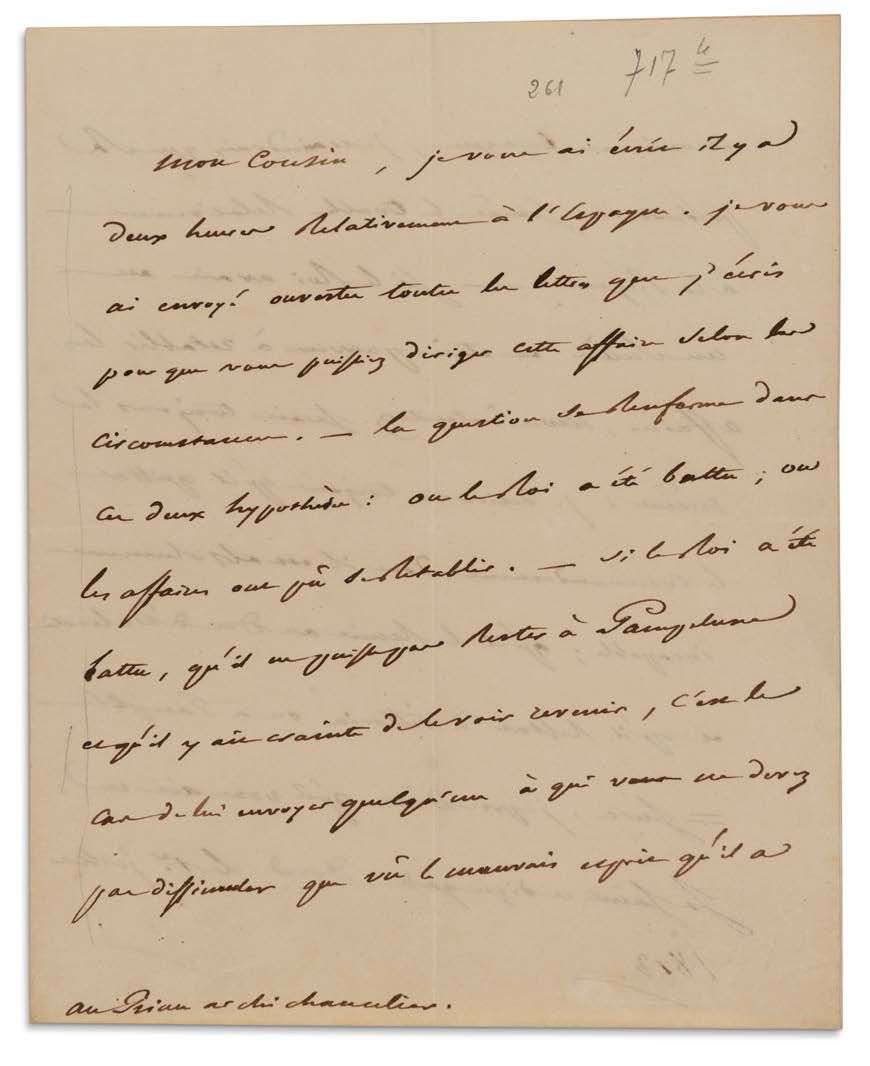 261 717
Mon Cousin, je vous ai écrit il y a
deux heures relativement à l'Espagne. je vous
ai envoyé ouvertes toutes les lettres que j'écris
pour que vous puissiez diriger cette affaire selon les
circonstances. — la question se renferme dans
ces deux hypothèses : ou le Roi a été battu ; ou
les affaires ont pû se rétablir. — si le Roi a été
battu, qu'il ne puisse pas rester à Pampelune
et qu'il y ait crainte de le voir revenir, c'est le
cas de lui envoyer quelqu'un à qui vous ne devez
pas dissimuler que vû le mauvais esprit qu'il a
au Prince archichancelier.